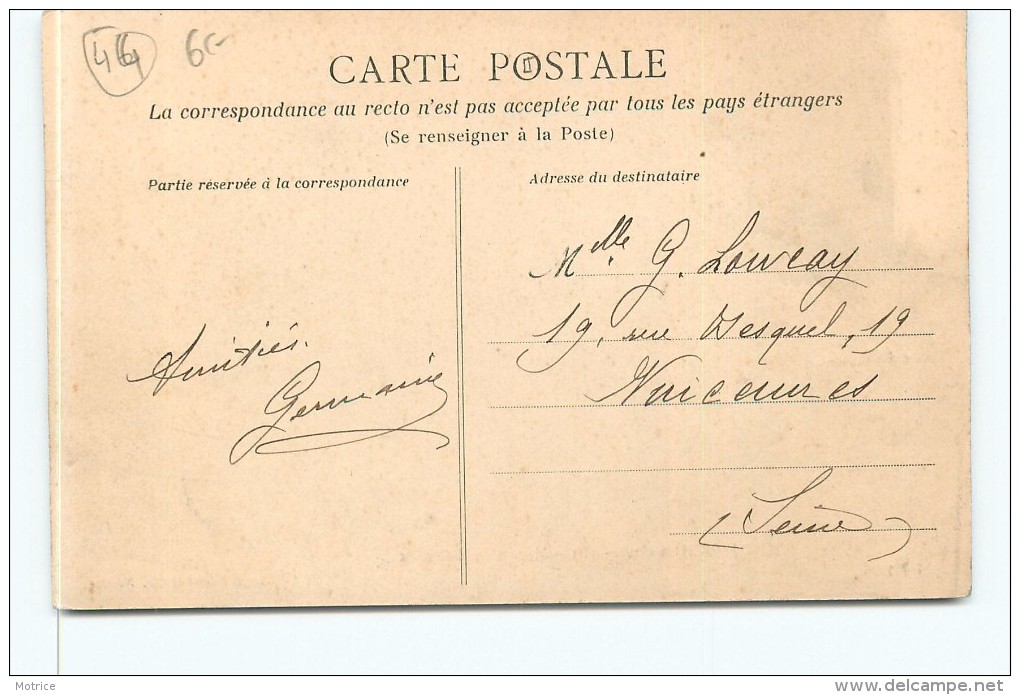 464 6-
CARTE POSTALE
La correspondance au recto n'est pas acceptée par tous les pays étrangers
(Se renseigner à la Poste)
Partie réservée à la correspondance
Amitiés.
Germaine
Adresse du destinataire
Mlle G.
19, rue 19
Vincennes
(Seine)
Motrice
www.delcampe.net